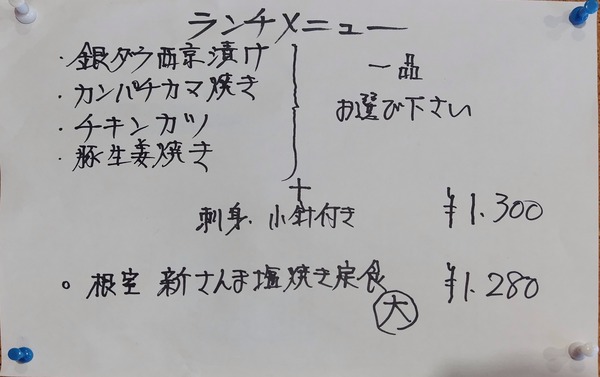 ランチメニュー
・銀ダラ西京漬け
・カンパチカマ焼き
・チキンカツ
・豚生姜焼き
一品
お選び下さい
+
刺身、小鉢付き ¥1.300
○ 根室 新さんま塩焼き定食 ¥1.280
大